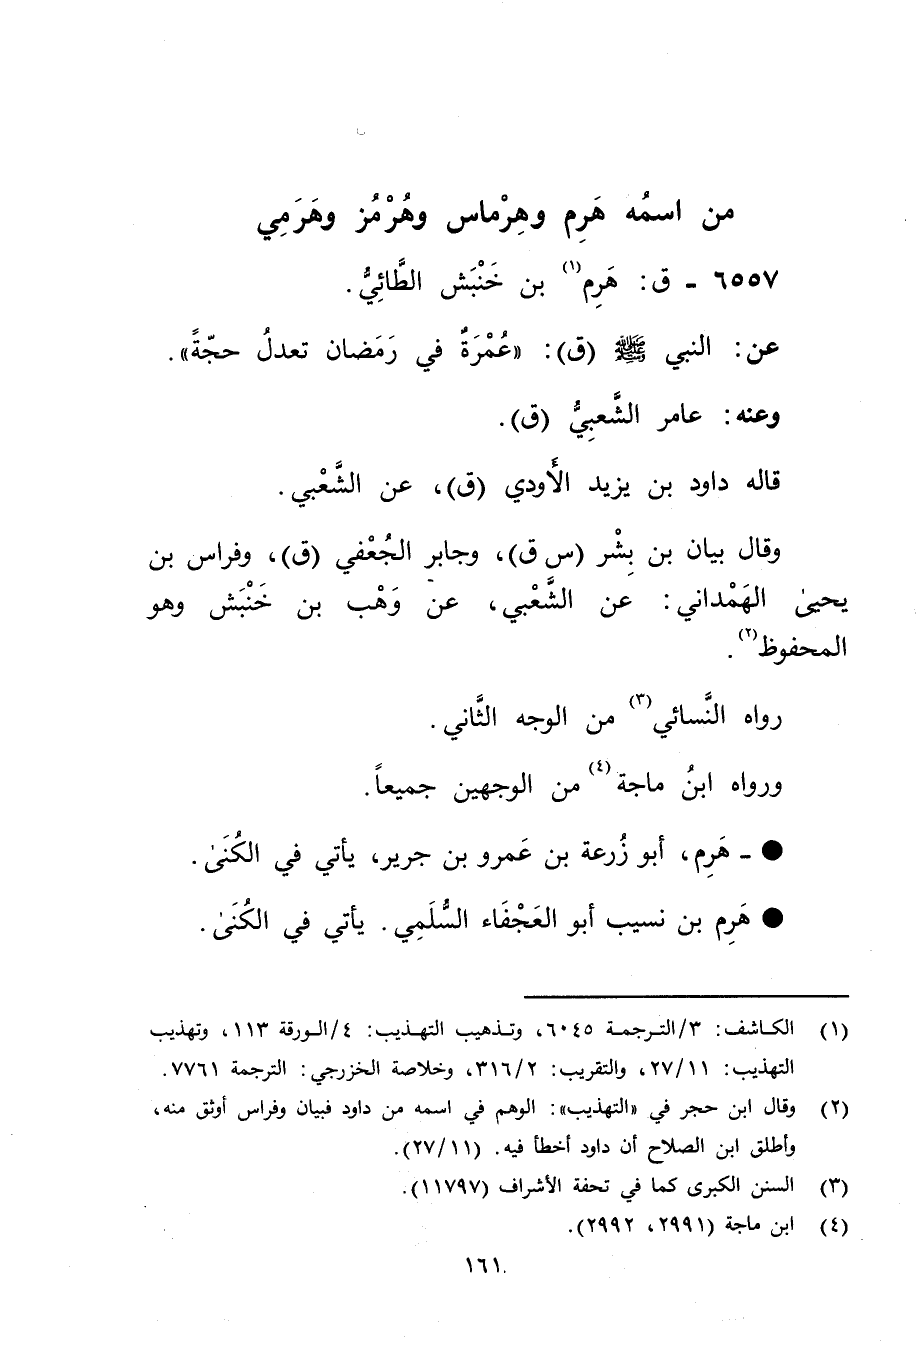 من اسمُه هَرِم وهِرْماس وهُرْمُز وهَرَمِي
٦٥٥٧ - ق: هَرِم(١) بن خَنْبَش الطَّائِيُّ.
عن: النبي ﷺ (ق): «عُمْرَةٌ في رَمَضان تعدلُ حجّةً».
وعنه: عامر الشَّعبِيُّ (ق).
قاله داود بن يزيد الأَودي (ق)، عن الشَّعْبي.
وقال بيان بن بِشْر (س ق)، وجابر الجُعْفي (ق)، وفراس بن
يحيىٰ الهَمْداني: عن الشَّعْبي، عن وَهْب بن خَنْبَش وهو
المحفوظ(٢).
رواه النَّسائي(٣) من الوجه الثَّاني.
ورواه ابنُ ماجة(٤) من الوجهين جميعاً.
● - هَرِم، أبو زُرعة بن عَمرو بن جرير، يأتي في الكُنَىٰ.
● هَرِم بن نسيب أبو العَجْفَاء السُّلَمِي. يأتي في الكُنَىٰ.
(١) الكاشف: ٣/الترجمة ٦٠٤٥، وتذهيب التهذيب: ٤/الورقة ١١٣، وتهذيب
التهذيب: ٢٧/١١، والتقريب: ٣١٦/٢، وخلاصة الخزرجي: الترجمة ٧٧٦١.
(٢) وقال ابن حجر في «التهذيب»: الوهم في اسمه من داود فبيان وفراس أوثق منه،
وأطلق ابن الصلاح أن داود أخطأ فيه. (٢٧/١١).
(٣) السنن الكبرى كما في تحفة الأشراف (١١٧٩٧).
(٤) ابن ماجة (٢٩٩١، ٢٩٩٢).
١٦١